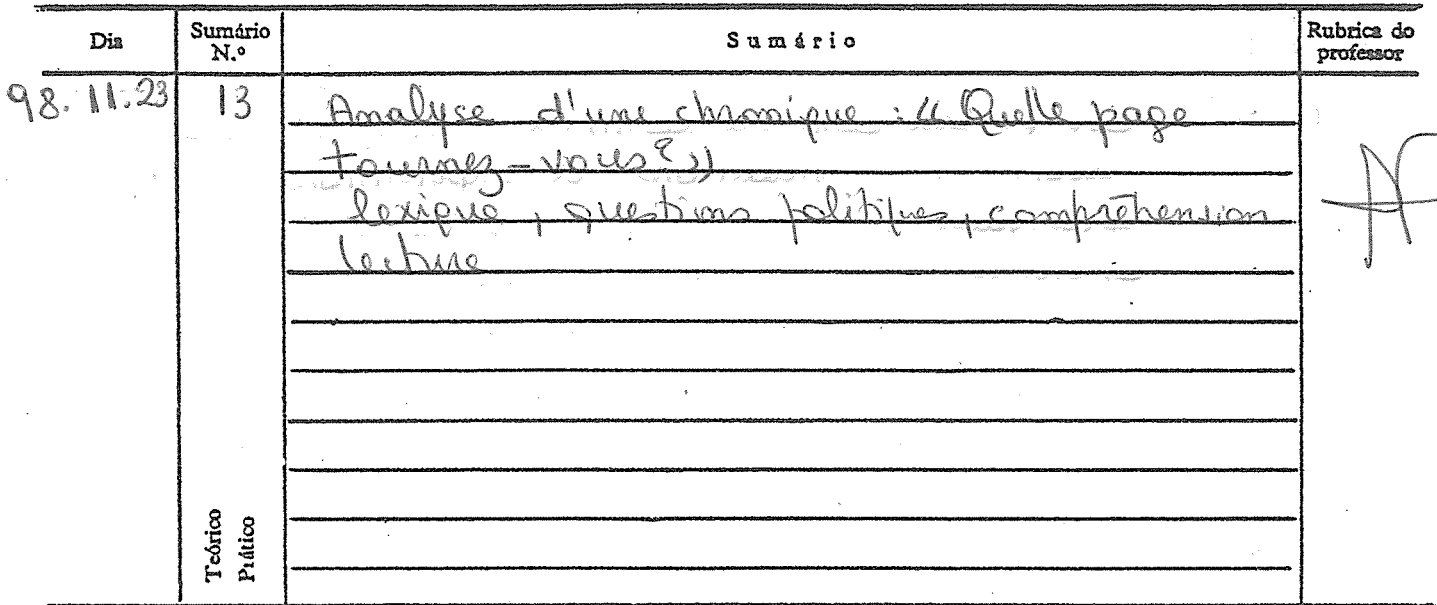 Dia Sumário N.º Sumário Rubrica do professor
98.11.23 13 Analyse d'une chronique : « Quelle page
tournez-vous ? »
lexique, questions politiques, compréhension
lecture
Teórico
Prático